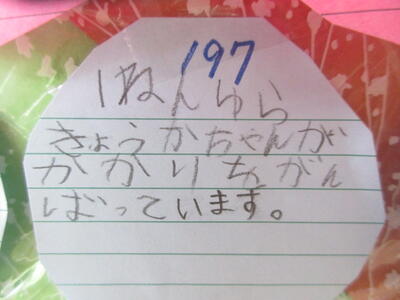 197
1ねんゆら
きょうかちゃんが
かかりをがん
ばっています。